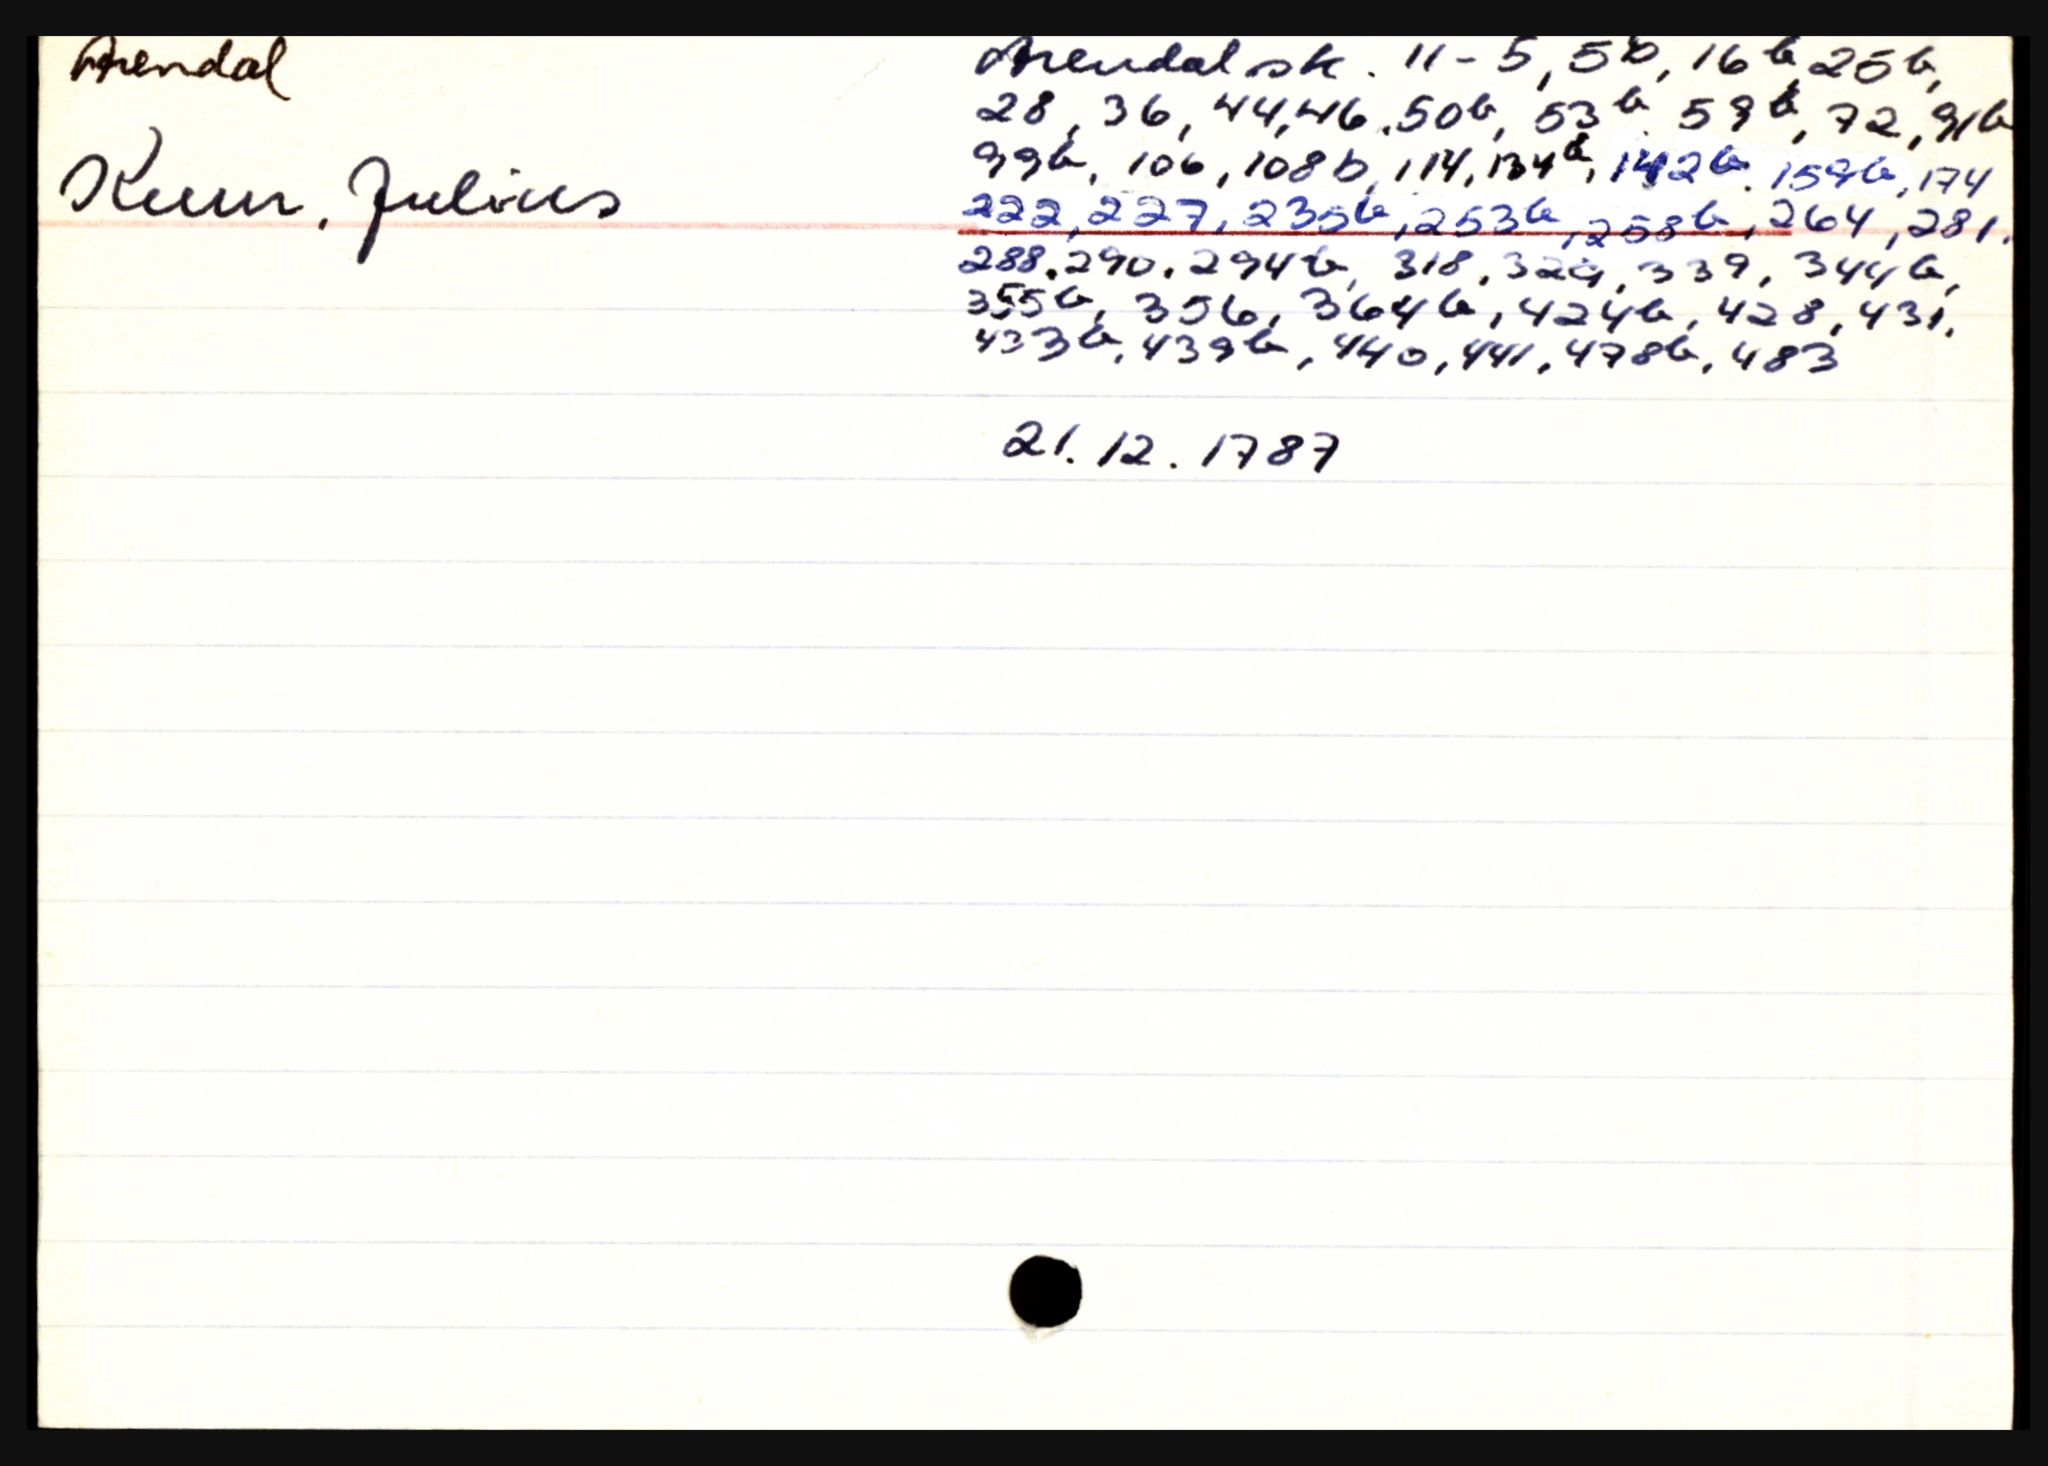 Arendal
Kuur, Julius
Arendal sk. 11-5, 5b, 16b, 25b,
28, 36, 44, 46. 50b, 53b. 59b, 72, 91b
99b, 106, 108b, 114, 134b, 142b. 159b, 174
222, 227, 235b, 253b, 258b, 264, 281.
288. 290. 294b, 318, 329, 339, 344b,
355b, 356, 364b, 424b, 428, 431.
433b, 439b, 440, 441, 478b, 483
21. 12. 1787